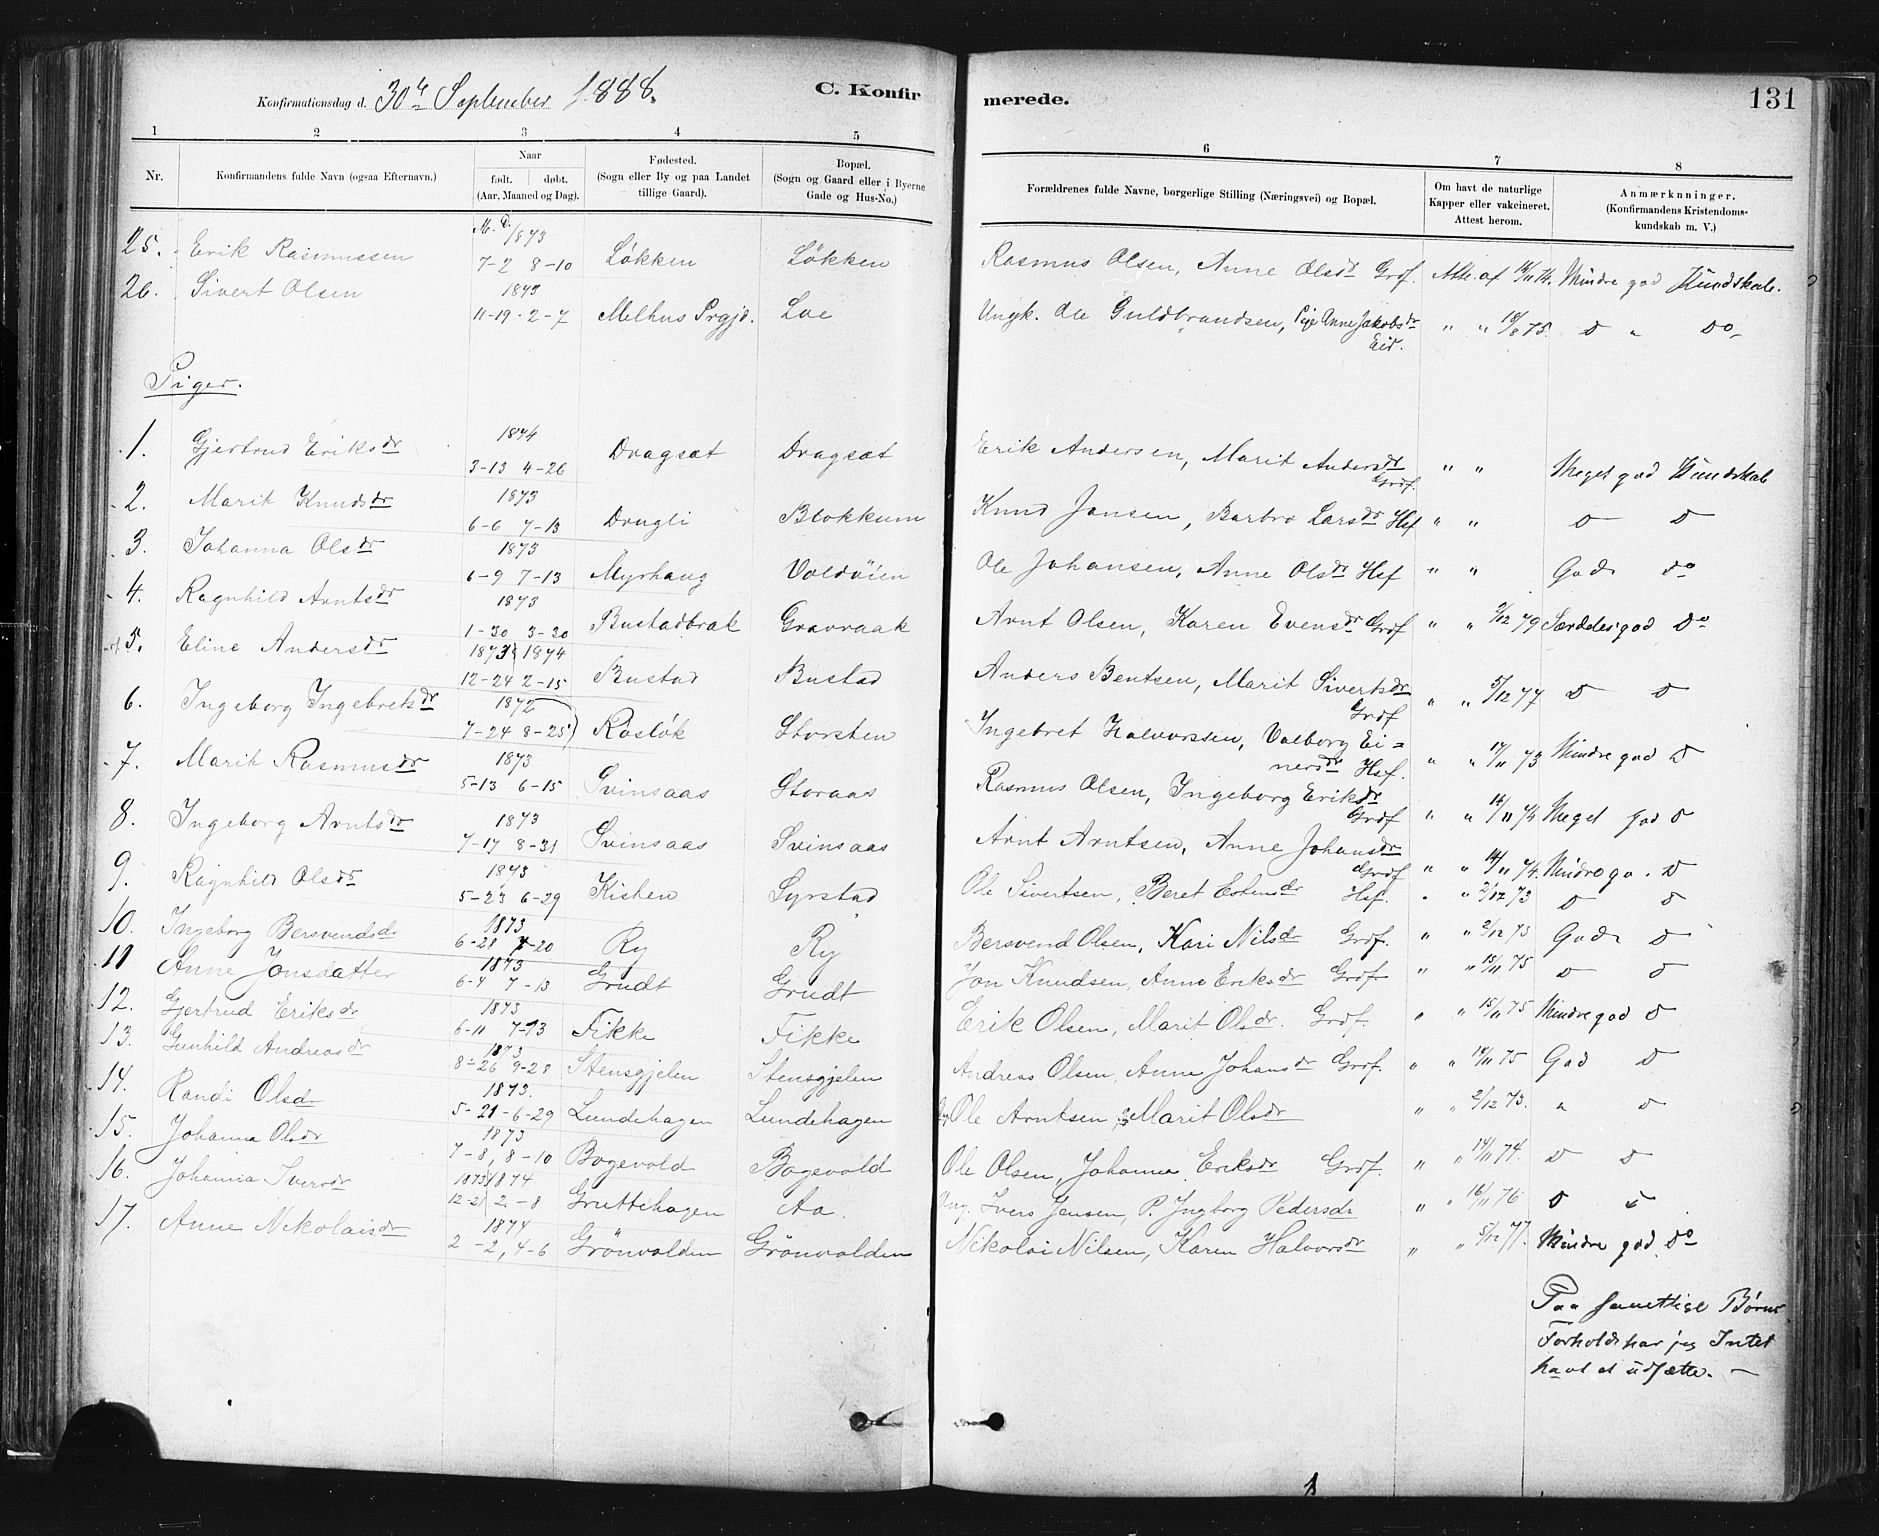 Konfirmationsdag d. 30te September 1888. C. Konfirmerede. 131
1 2 3 4 5 6 7 8
Nr. Konfirmandens fulde Navn (ogsaa Efternavn.) Naar født. døbt. (Aar, Maaned og Dag). Fødested. (Sogn eller By og paa Landet tillige Gaard). Bopæl. (Sogn og Gaard eller i Byerne Gade og Hus-No.) Forældrenes fulde Navne, borgerlige Stilling (Næringsvei) og Bopæl. Om havt de naturlige Kapper eller vakcineret. Attest herom. Anmærkninger. (Konfirmandens Kristendomskundskab m. V.)
M. D. / 1873
25. Erik Rasmussen 7-2 8-10 Løkken Løkken Rasmus Olsen, Anne Olsdr Grdf. Atte. af 14/11 74. Mindre god Kundskab.
26. Sivert Olsen 1873 11-19 - 2-7 Melhus Prgjd. Loe Ungk. Ole Guldbrandsen, Pige Anne Jakobsdr Eid. " " 18/8 75. D " Do
Piger.
1. Gjertrud Eriksdr 1874 3-13 4-26 Dragsæt Dragsæt Erik Andersen, Marit Andersdr Grdf. " " Meget god Kundskab
2. Marit Knudsdr 1873 6-6 7-13 Drugli Blokkum Knud Jonsen, Barbro Larsdr Hsf " " D D
3. Johanna Olsdr 1873 6-9 7-13 Myrhaug Voldøien Ole Johansen, Anne Olsdr Hsf " " God Do
4. Ragnhild Arntsdr 1873 1-30 3-30 Bustadbrak Gravraak Arnt Olsen, Karen Evensdr Grdf " " 2/12 79 Særdeles god Do
5. Eline Andersdr 1873 1874 12-24 2-15 Bustad Bustad Anders Bentsen, Marit Sivertsdr Grdf " " 5/12 77 D D
6. Ingeborg Ingebretsdr 1872 7-24 8-25 Rosløk Storsten Ingebret Halvorssen, Valborg Einersdr Hsf. " " 17/11 73 Mindre god D
7. Marit Rasmusdr 1873 5-13 6-15 Svinsaas Storaas Rasmus Olsen, Ingeborg Eriksdr Grdf " " 14/11 74 Meget god D
8. Ingeborg Arntsdr 1873 7-17 8-31 Svinsaas Svinsaas Arnt Arntsen, Anne Johansdr Grdf " " 14/11 74. Mindre go. D
9. Ragnhild Olsdr 1873 5-23 6-29 Kishen Syrstad Ole Sivertsen, Beret Estensdr Hsf. " " 2/12 73 D D
10. Ingeborg Bersvendsdr 1873 6-28 7-20 Ry Ry Bersvend Olsen, Kari Nilsdr Grdf. " " 2/12 73 God D
11 Anne Jonsdatter 1873 6-4 7-13 Grudt Grudt Jon Knudsen, Anne Eriksdr Grdf. " " 15/11 75 D D
12. Gjertrud Eriksdr 1873 6-11 7-13 Fikke Fikke Erik Olsen, Marit Olsdr. Grdf. " " 15/11 75 Mindre god D
13. Gunhild Andreasdr 1873 8-26 9-28 Stensgjelen Stensgjelen Andreas Olsen, Anne Johansdr Grdf. " " 14/11 75 God D
14. Randi Olsdr 1873. 5-21-6-29 Lundehagen Lundehagen Ole Arntsen, Marit Olsdr " " 2/12 73. " D
15. Johanna Olsdr 1873 7-8, 8-10 Bogevold Bogevold Ole Olsen, Johanna Eriksdr Grdf. " " 14/11 74. D D
16. Johanna Iversdr 1873/1874 12-21 2-8 Gruttehagen Aa. Ung. Ivers Jensen, P. Ingborg Pedersdr " " 16/11 76 D D
17. Anne Nikolaisdr 1874 2-2, 4-6 Grönvolden Grönvolden Nikolai Nilsen, Karen Halvorsdr " " 5/12 77. Mindre god. Do
Paa samtlige Børns
Forhold har jeg Intet
havt at udsætte. —